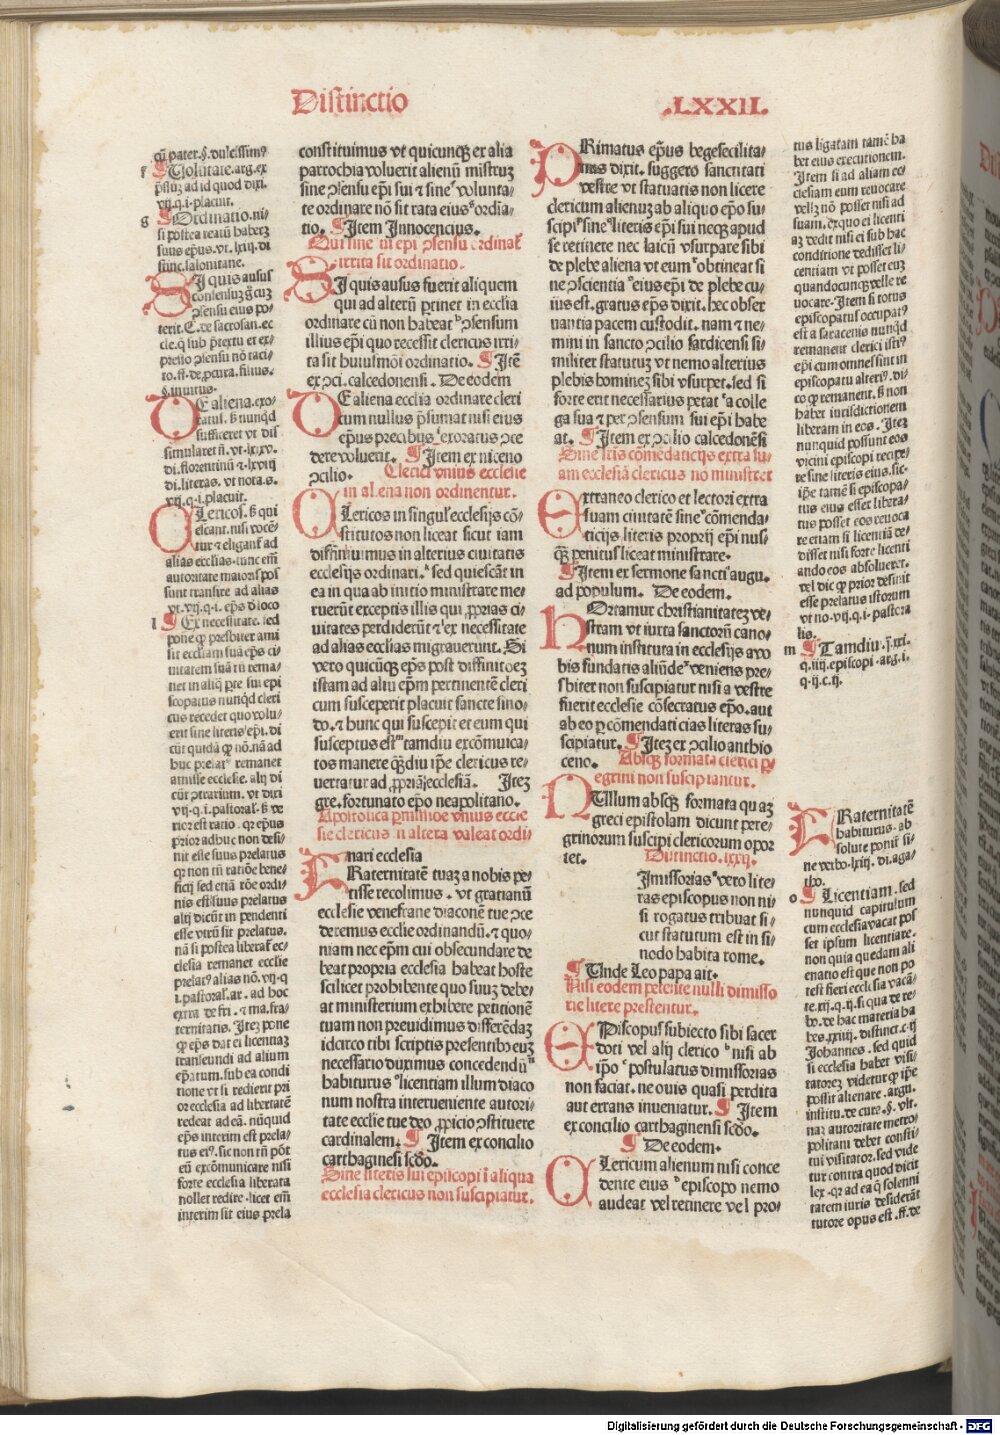 Distinctio .LXXII.
cũ pater.§. dulcissim⁹
¶Volũtate.arg.ex
ꝓsuz ad id quod dixi.
vij.q.i.placuit.
g ¶Ordinatio.ni-
si postea ratũ habeat
suus ep̃us.vt.lxiij.di
func.salonitane.
SI quis ausus
consensuz.scuz
ꝯsensu eius po-
terit.C.de sacrosan.ec
cle.q̃ sub p̃textu et ex-
presso ꝯsensu nõ taci-
to.ff.de.ꝓcura.filius.
§.inuitus.
DE aliena.exo-
ratus. nunqd
sufficeret vt dis
simularet n̄.vt.lxxv.
di.florentinũ ⁊.lxviij
di.literas.vt nota.s.
xvj.q.i.placuit.
CLericos.qui
elegant ad
alias ecclias.tunc em̃
autoritate maioris pos
sunt transire ad alias
vt.vij.q.i.ep̃s d̃ loco
l ¶Ex necessitate.sed
pone ꝙ presbiter ami
sit eccliam suã ep̃s ci-
uitatem suã tñ rema-
net in aliq̃ p̃te sui epi
scopatus nunqd cleri
cus recedet quo volu-
erit sine literis ep̃i.di
cũt quidã ꝙ nõ.nã ad
huc prelat⁹ remanet
amisse ecclesie.alij di
cũt ꝯtrarium.vt dixi
vij.q.i.pastoral.
rior est ratio.qr ep̃us
prior adhuc non desi-
nit esse suus prelatus
qr non tñ ratiõe bene-
ficij sed etiã rõe ordi-
nis est suus prelatus
alij dicũt in pendenti
esse vtrũ sit prelatus.
nã si postea liberat ec-
clesia remanet ecclie
prelat⁹ alias nõ.vij.q
i.pastoral.ar.ad hoc
extra de fri.⁊ ma.fra-
ternitatis.Itez pone
ꝙ ep̃s dat ei licentiaz
transeundi ad alium
ep̃atum.sub ea condi
tione vt si redierit pri
or ecclesia ad libertatẽ
redeat ad eã.nũquid
ep̃s interim est prela-
tus ei⁹.sic non tñ pôt
eũ excõmunicare nisi
forte ecclesia liberata
nollet redire.licet em̃
interim sit eius prela
constituimus vt quicunqꝫ ex alia
parrochia voluerit alienũ mistruz
sine ꝯsensu ep̃i sui ⁊ sine volunta-
te ordinare nõ sit rata eius ordia-
tio. ¶Item Innocencius.
Qui sine sui epi ꝯsensu ordinat
irrita sit ordinatio.
SI quis ausus fuerit aliquem
qui ad alterũ ꝑtinet in ecclia
ordinare cũ non habeat ꝯsensum
illius ep̃i quo recessit clericus irri
ta sit huiusmõi ordinatio. ¶Itẽ
ex ꝯci.calcedonensi. De eodem
DE aliena ecclia ordinare cleri
cum nullus p̃sumat nisi eius
ep̃us precibus exoratus ꝯce
dere voluerit. ¶Item ex niceno
ꝯcilio. Clerici vnius ecclesie
in aliena non ordinentur.
CLericos in singul ecclesijs cõ-
stitutos non liceat sicut iam
diffiniuimus in alterius ciuitatis
ecclesijs ordinari. sed quiescãt in
ea in qua ab initio ministrare me-
ruerũt exceptis illis qui ꝓprias ci-
uitates perdiderũt ⁊ ex necessitate
ad alias ecclias migrauerunt. Si
vero quicũqꝫ ep̃s post diffinitoez
istam ad aliũ ep̃m pertinentẽ cleri
cum susceperit placuit sancte sino-
do.⁊ hunc qui suscepit et eum qui
susceptus est tamdiu excõmuica-
tos manere qᷓdiu ip̃e clericus re-
uertatur ad ꝓpriaꝫ ecclesiã. Itez
gre.fortunato ep̃o neapolitano.
Apostolica ꝑmissioe vnius eccle
sie clericus in altera valeat ordi-
nari ecclesia
FRaternitatẽ tuaz a nobis pe-
tisse recolimus.vt gratianũ
ecclesie venefrane diaconẽ tue ꝯce
deremus ecclie ordinandũ.⁊ quo-
niam nec ep̃m cui obsecundare de
beat propria ecclesia habeat hoste
scilicet prohibente quo suuz debe-
at ministerium exhibere petitionẽ
tuam non preuidimus differẽdaz
idcirco tibi scriptis presentibꝰ euz
necessario duximus concedendũ
habiturus licentiam illum diaco
num nostra interueniente autori-
tate ecclie tue deo ꝓpicio ꝯstituere
cardinalem. ¶Item ex concilio
carthaginesi scďo.
Sine literis sui episcopi ĩ aliqua
ecclesia clericus non suscipiatur.
PRimatus ep̃us begesecilita-
nus dixit.suggero sanctitati
vestre vt statuatis non licere
clericum alienuz ab aliquo ep̃o su-
scipi sine literis ep̃i sui necqꝫ apud
se retinere nec laicũ vsurpare sibi
de plebe aliena vt eum obtineat si
ne ꝯscientia eius ep̃i de plebe cu-
ius est.gratus ep̃s dixit.hec obser
uantia pacem custodit.nam ⁊ me-
mini in sancto ꝯcilio sardicensi si-
militer statutuz vt nemo alterius
plebis hominez sibi vsurpet.sed si
forte erit necessarius petat a colle
ga sua ⁊ per ꝯsensum sui ep̃i habe
at. ¶Item ex ꝯcilio calcedonẽsi
Sine lr̃is cõmẽdaticijs extra su-
am ecclesiã clericus nõ ministret
EXtraneo clerico et lectori extra
suam ciuitatẽ sine cõmenda-
ticijs literis proprij ep̃i nus-
qᷓꝫ penitus liceat ministrare.
¶Item ex sermone sancti augu.
ad populum. De eodem.
HOrtamur christianitatez ve-
stram vt iuxta sanctorũ cano-
num instituta in ecclesijs a vo
bis fundatis aliũde veniens pre-
sbiter non suscipiatur nisi a vestre
fuerit ecclesie cõsecratus ep̃o.aut
ab eo ꝑ cõmendaticias literas su-
scipiatur. ¶Itez ex ꝯcilio anthio
ceno. Absqꝫ formata clerici pe
regrini non suscipiantur.
NUllum absqꝫ formata quaz
greci epistolam dicunt pere-
grinorum suscipi clericorum opor
tet. Distinctio.lxxij.
Imissorias vero lite-
ras episcopus non ni
si rogatus tribuat si-
cut statutum est in si-
nodo habita rome.
¶Unde Leo papa ait.
Nisi eodem petente nulli dimisso
rie litere prestentur.
EPiscopus subiecto sibi sacer
doti vel alij clerico nisi ab
ip̃o postulatus dimissorias
non faciat.ne ouis quasi perdita
aut errans inueniatur. ¶Item
ex concilio carthaginensi scďo.
¶ De eodem.
CLericum alienum nisi conce
dente eius episcopo nemo
audeat vel retinere vel pro-
tus ligatam tamẽ ha
bet eius executionem.
Item si ad aliam ec-
clesiam eum reuocare
vell nõ posset nisi ad
suam.ex quo ei licenti
az dedit nisi ei sub hac
conditione dedisset li-
centiam vt posset euz
quandocunqꝫ velle re
uocare.Item si totus
episcopatus occupat⁹
est a saracenis nunqd
remanent clerici isti⁹
ep̃i cum omnes sint in
episcopatu alteri⁹.di-
co ꝙ remanent. non
habet iurisdictionem
liberam in eos.Itez
nunquid possunt eos
vicini episcopi recipe-
re sine literis eius.sic.
ip̃e tamẽ si episcopa-
tus eius esset libera-
tus posset eos reuoca
re etiam si licentiã de-
disset nisi forte licenti
ando eos absolueret.
vel dic ꝙ prior desinit
esse prelatus istorum
vt no.vij.q.i.pastora
lis.
m ¶Tamdiu.j.xxi.
q.iiij.episcopi.arg.i.
q.ij.c.ij.
FRaternitatẽ
habiturus.ab
solute ponit̃ si-
ne verbo.lxiij.di.aga-
tho.
o ¶Licentiam.sed
nunquid capitulum
cum ecclesia vacat pos
set ipsum licentiare.
non quia quedam ali
enatio est que non po
test fieri ecclesia vacã-
te.xij.q.ij.si qua de re-
bꝰ.de hac materia ha
bes.xxiiij.distinct.c.ij
Johannes.sed quid
si ecclesia habet visi-
tatorez videtur ꝙ ip̃e
possit alienare.argu.
institu.de cure.§.vlt.
nã autoritate metro-
politani debet consti-
tui visitator.sed vide
tur contra quod dicit
lex.qr ad ea q̃ solenni
tatem iuris desiderãt
tutore opus est.ff.de
Digitalisierung gefördert durch die Deutsche Forschungsgemeinschaft - DFG